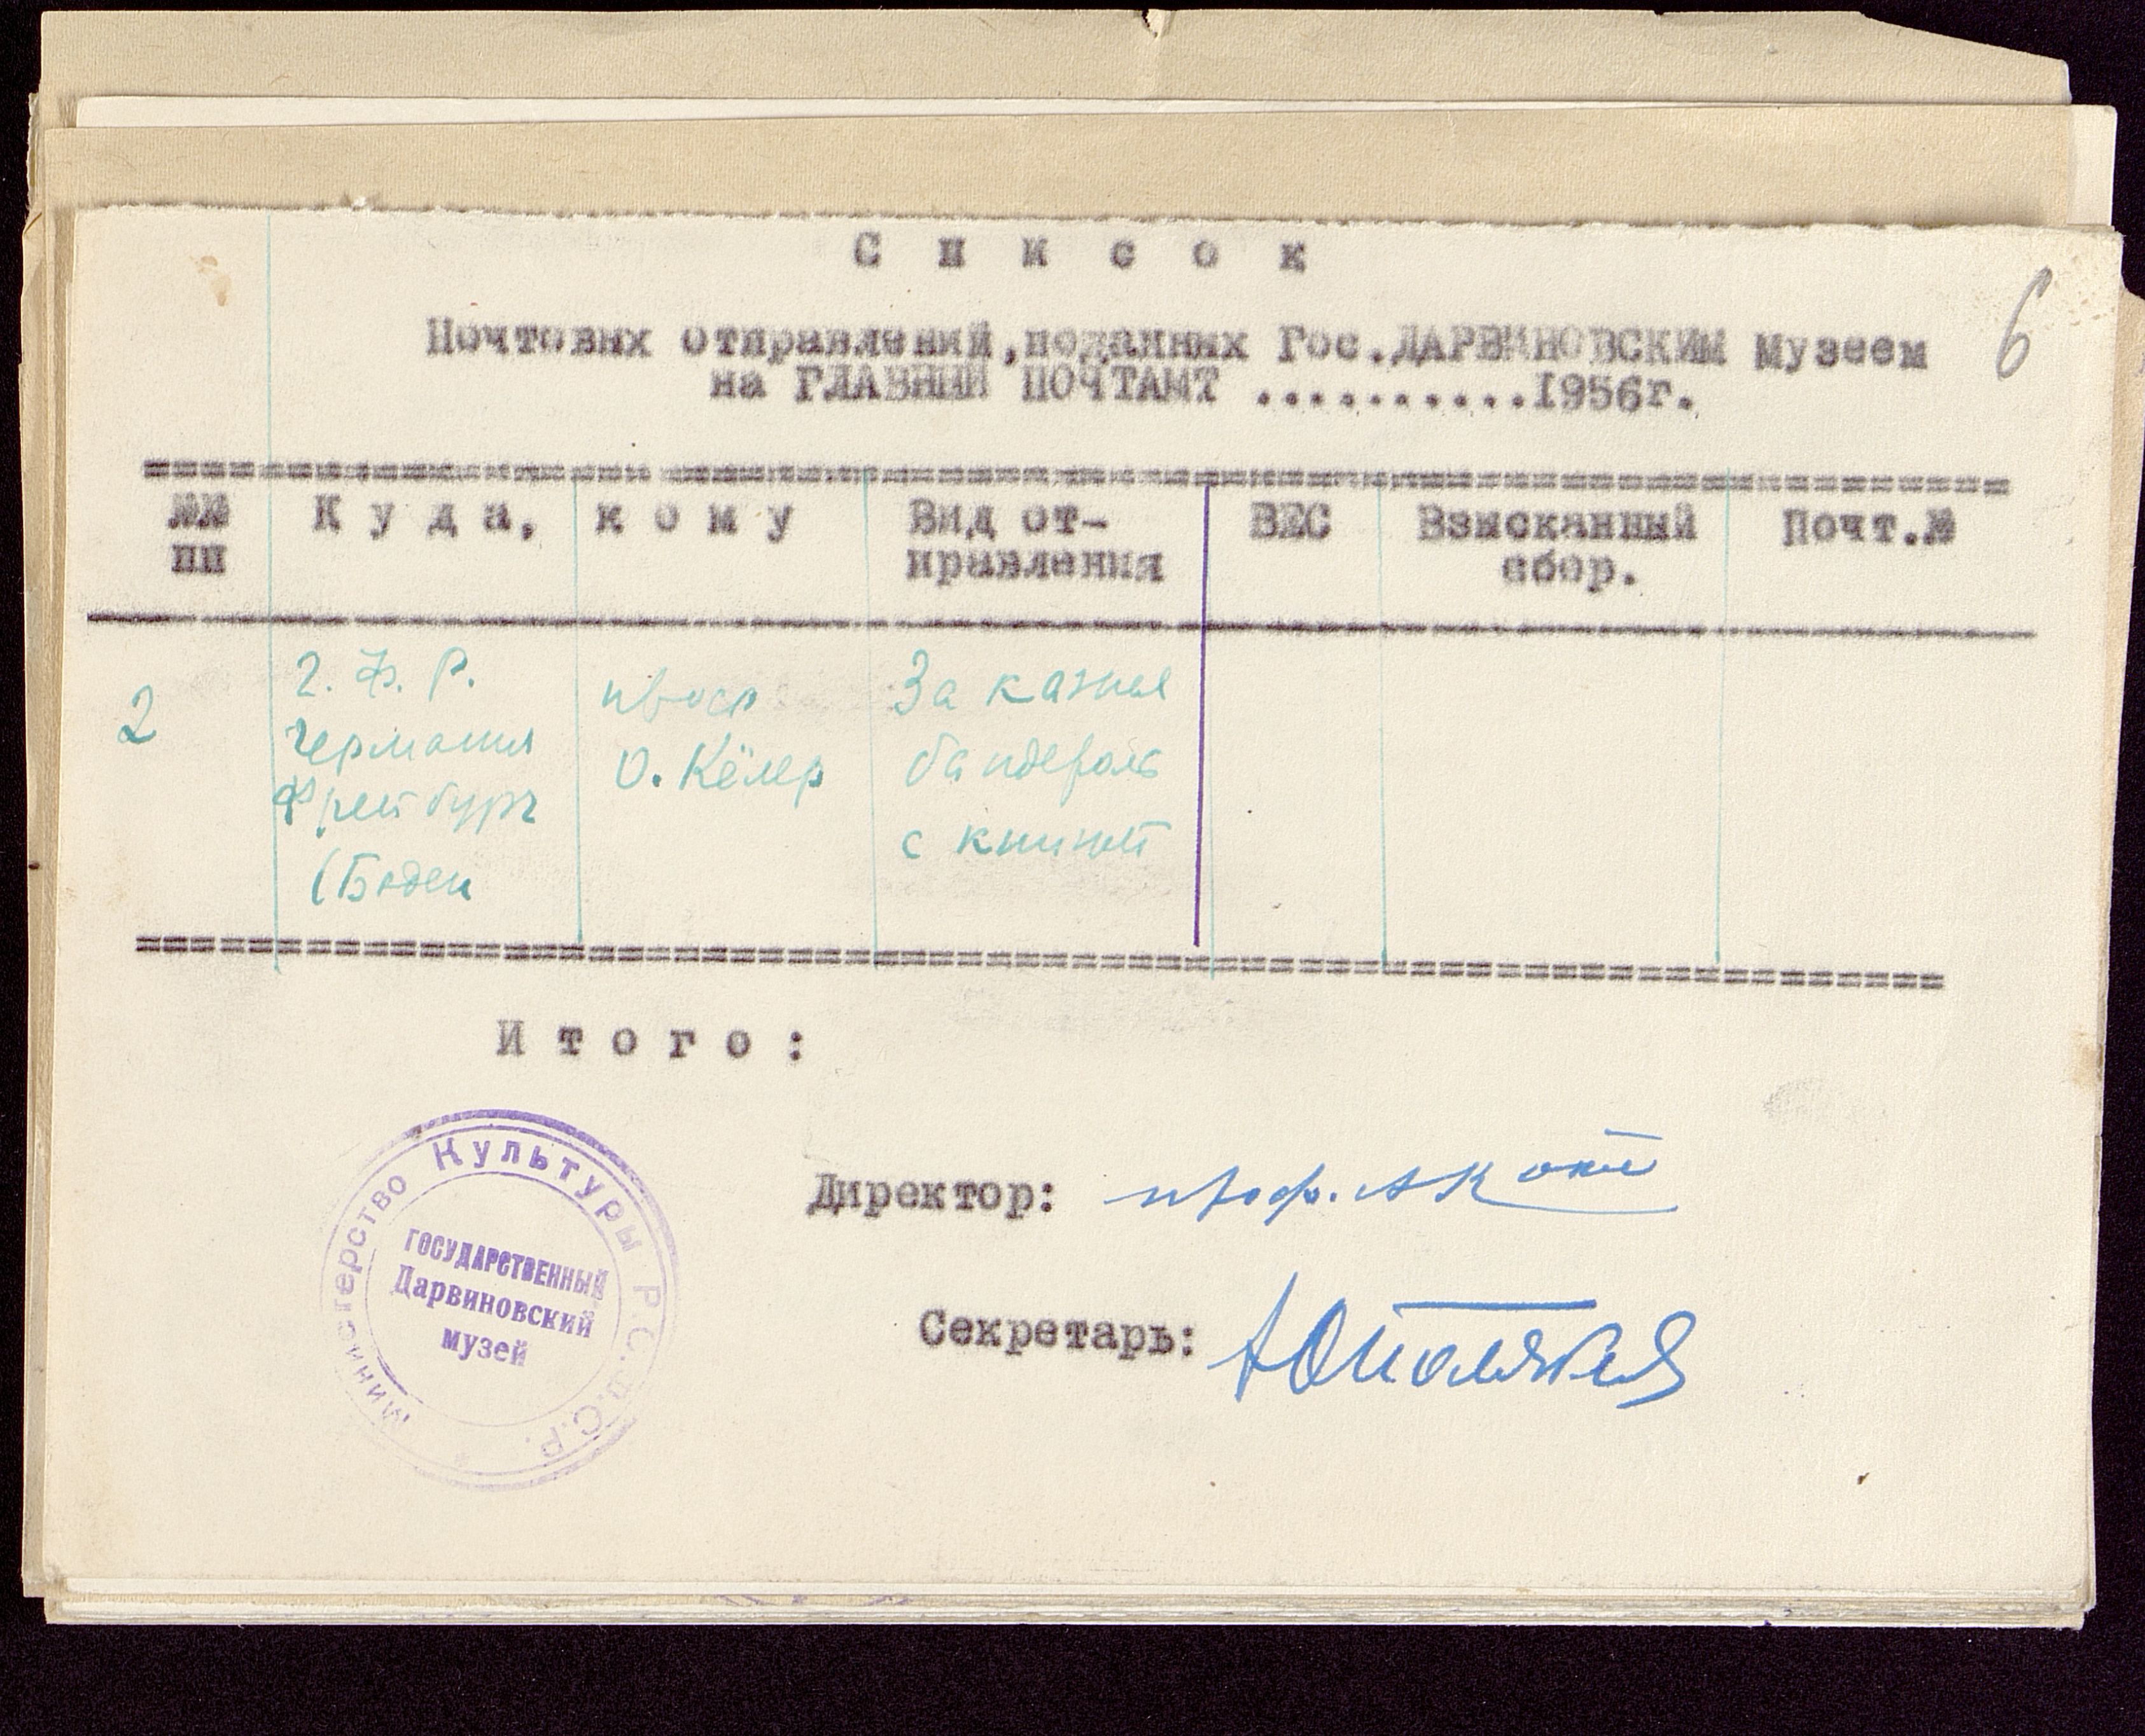 С п и с о к
6
Почтовых отправлений,поданных Гос.ДАРВИНОВСКИМ Музеем
на ГЛАВНЫЙ ПОЧТАМТ ...........1956г.
№№ К у д а, к о м у Вид от- ВЕС Взысканный Почт.№
пп правления сбор.
2 Г. Ф. Р. проф За казная
Германия О. Кёлер бандероль
Фрейбург с книгой
(Баден
И т о г о :
Директор: проф. А Котс
Секретарь:
Министерство Культуры Р.С.Ф.С.Р.
ГОСУДАРСТВЕННЫЙ
Дарвиновский
музей